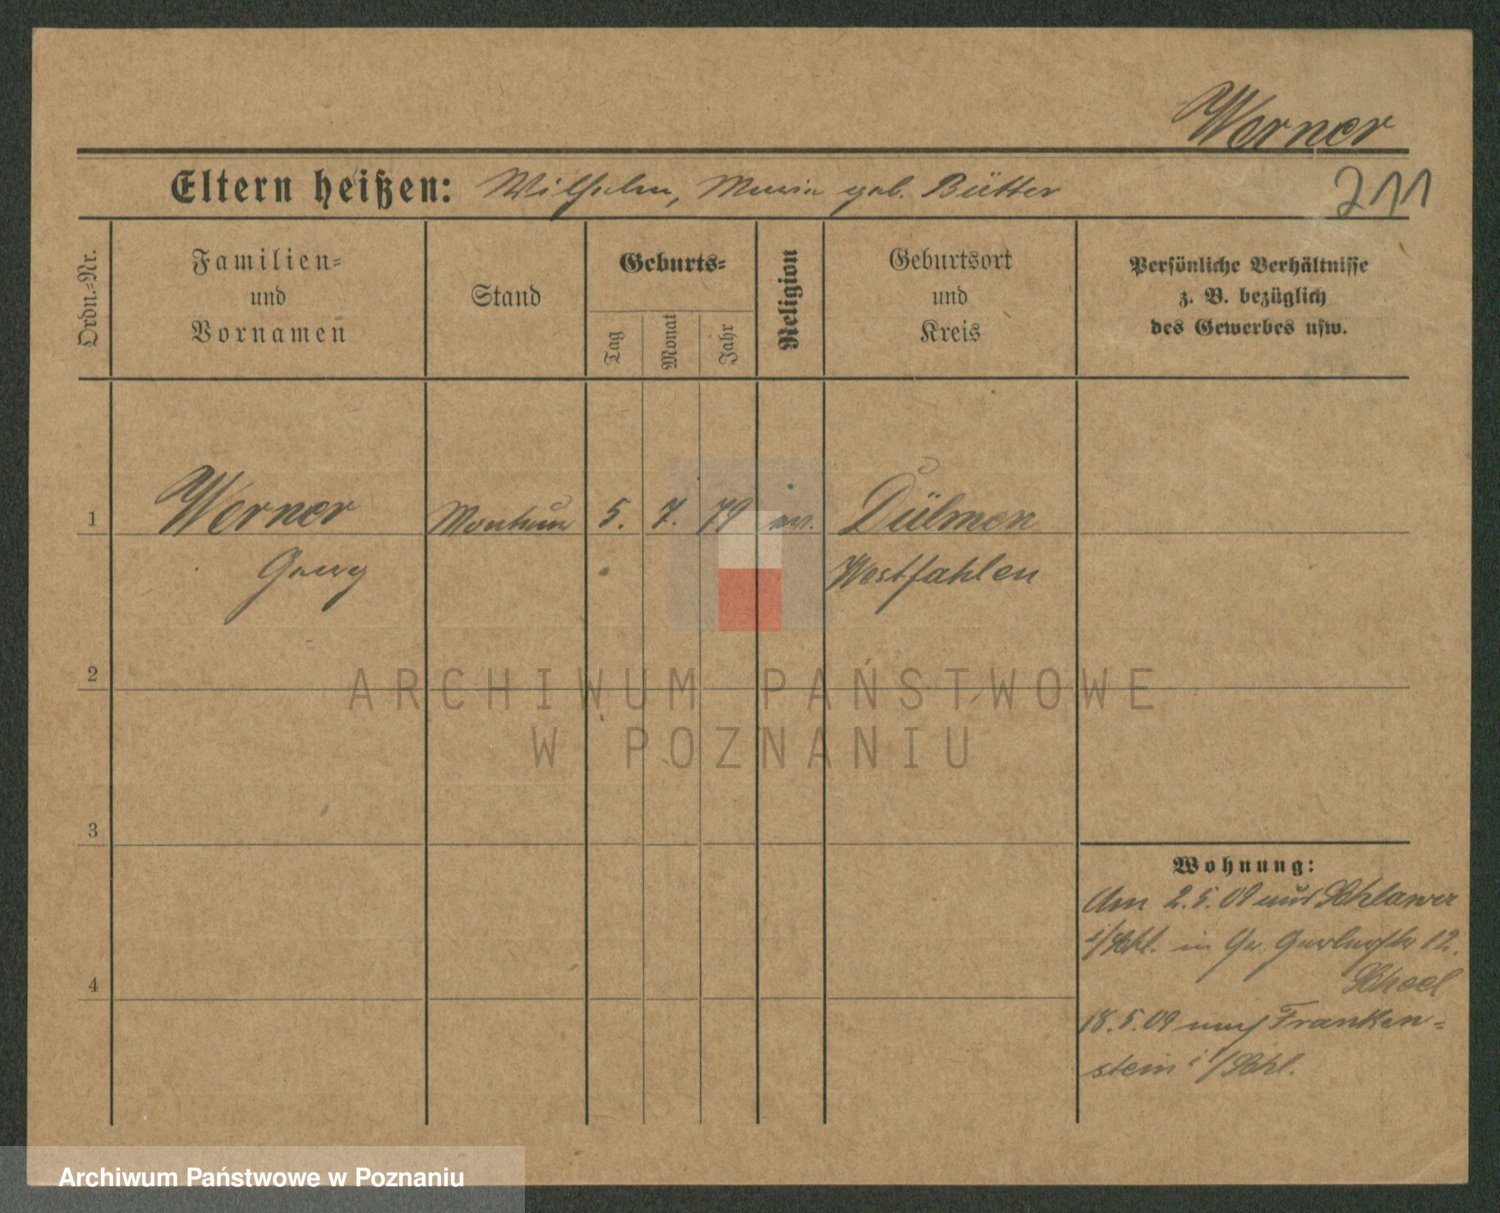 Werner
211
Eltern heißen: Wilhelm, Maria geb. Bütter
Ordn.-Nr.
Familien-
und
Vornamen
Stand
Geburts-
Tag
Monat
Jahr
Religion
Geburtsort
und
Kreis
Persönliche Verhältnisse
z. B. bezüglich
des Gewerbes usw.
1
Werner
Monteur
5.
7.
79
ev.
Dülmen
Georg
Westfahlen
2
ARCHIWUM PAŃSTWOWE
W POZNANIU
3
Wohnung:
Am 2.5.09 aus Schlawa
i/Schl. in 12.
Scheel
4
18.5.09 nach Franken-
stein i/Schl.
Archiwum Państwowe w Poznaniu